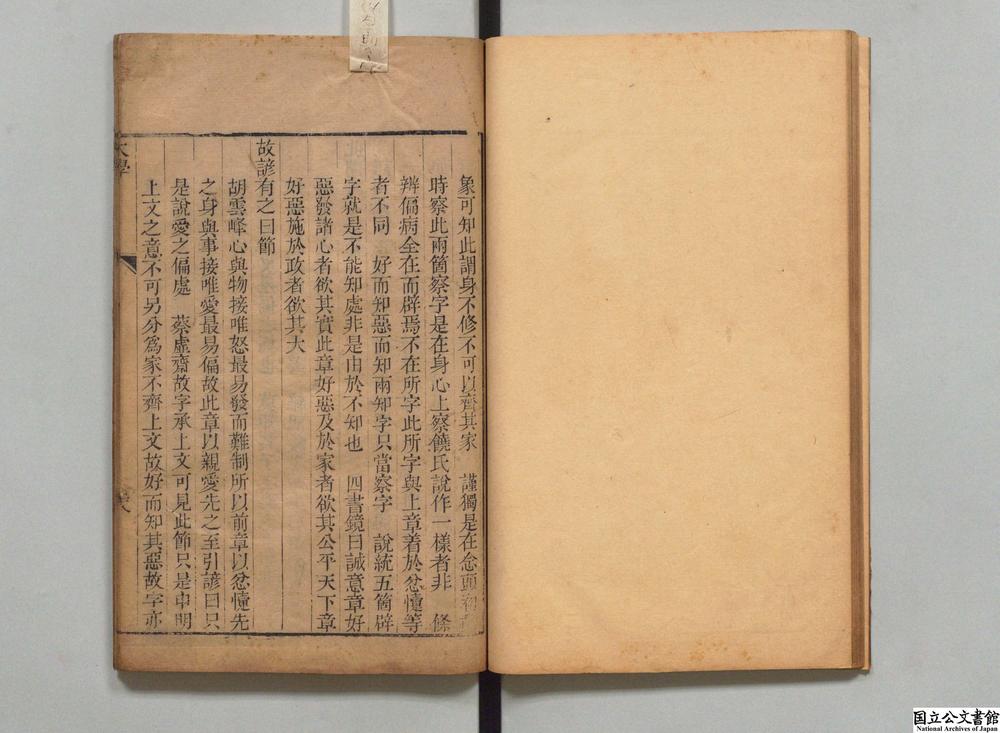 象可知此謂身不修不可以齊其家　謹獨是在念頭初
時察此兩箇察字是在身心上察饒氏說作一樣者非　條
辨偏病全在而辟焉不在所字此所字與上章着於忿懥等
者不同　好而知惡而知兩知字只當察字　說統五箇辟
字就是不能知處非是由於不知也　四書鏡曰誠意章好
惡發諸心者欲其實此章好惡及於家者欲其公平天下章
好惡施於政者欲其大
故諺有之曰節
胡雲峰心與物接唯怒最易發而難制所以前章以忿懥先
之身與事接唯愛最易偏故此章以親愛先之至引諺曰只
是說愛之偏處　蔡虛齋故字承上文可見此節只是申明
上文之意不可另分爲家不齊上文故好而知其惡故字亦
大學
国立公文書館
National Archives of Japan